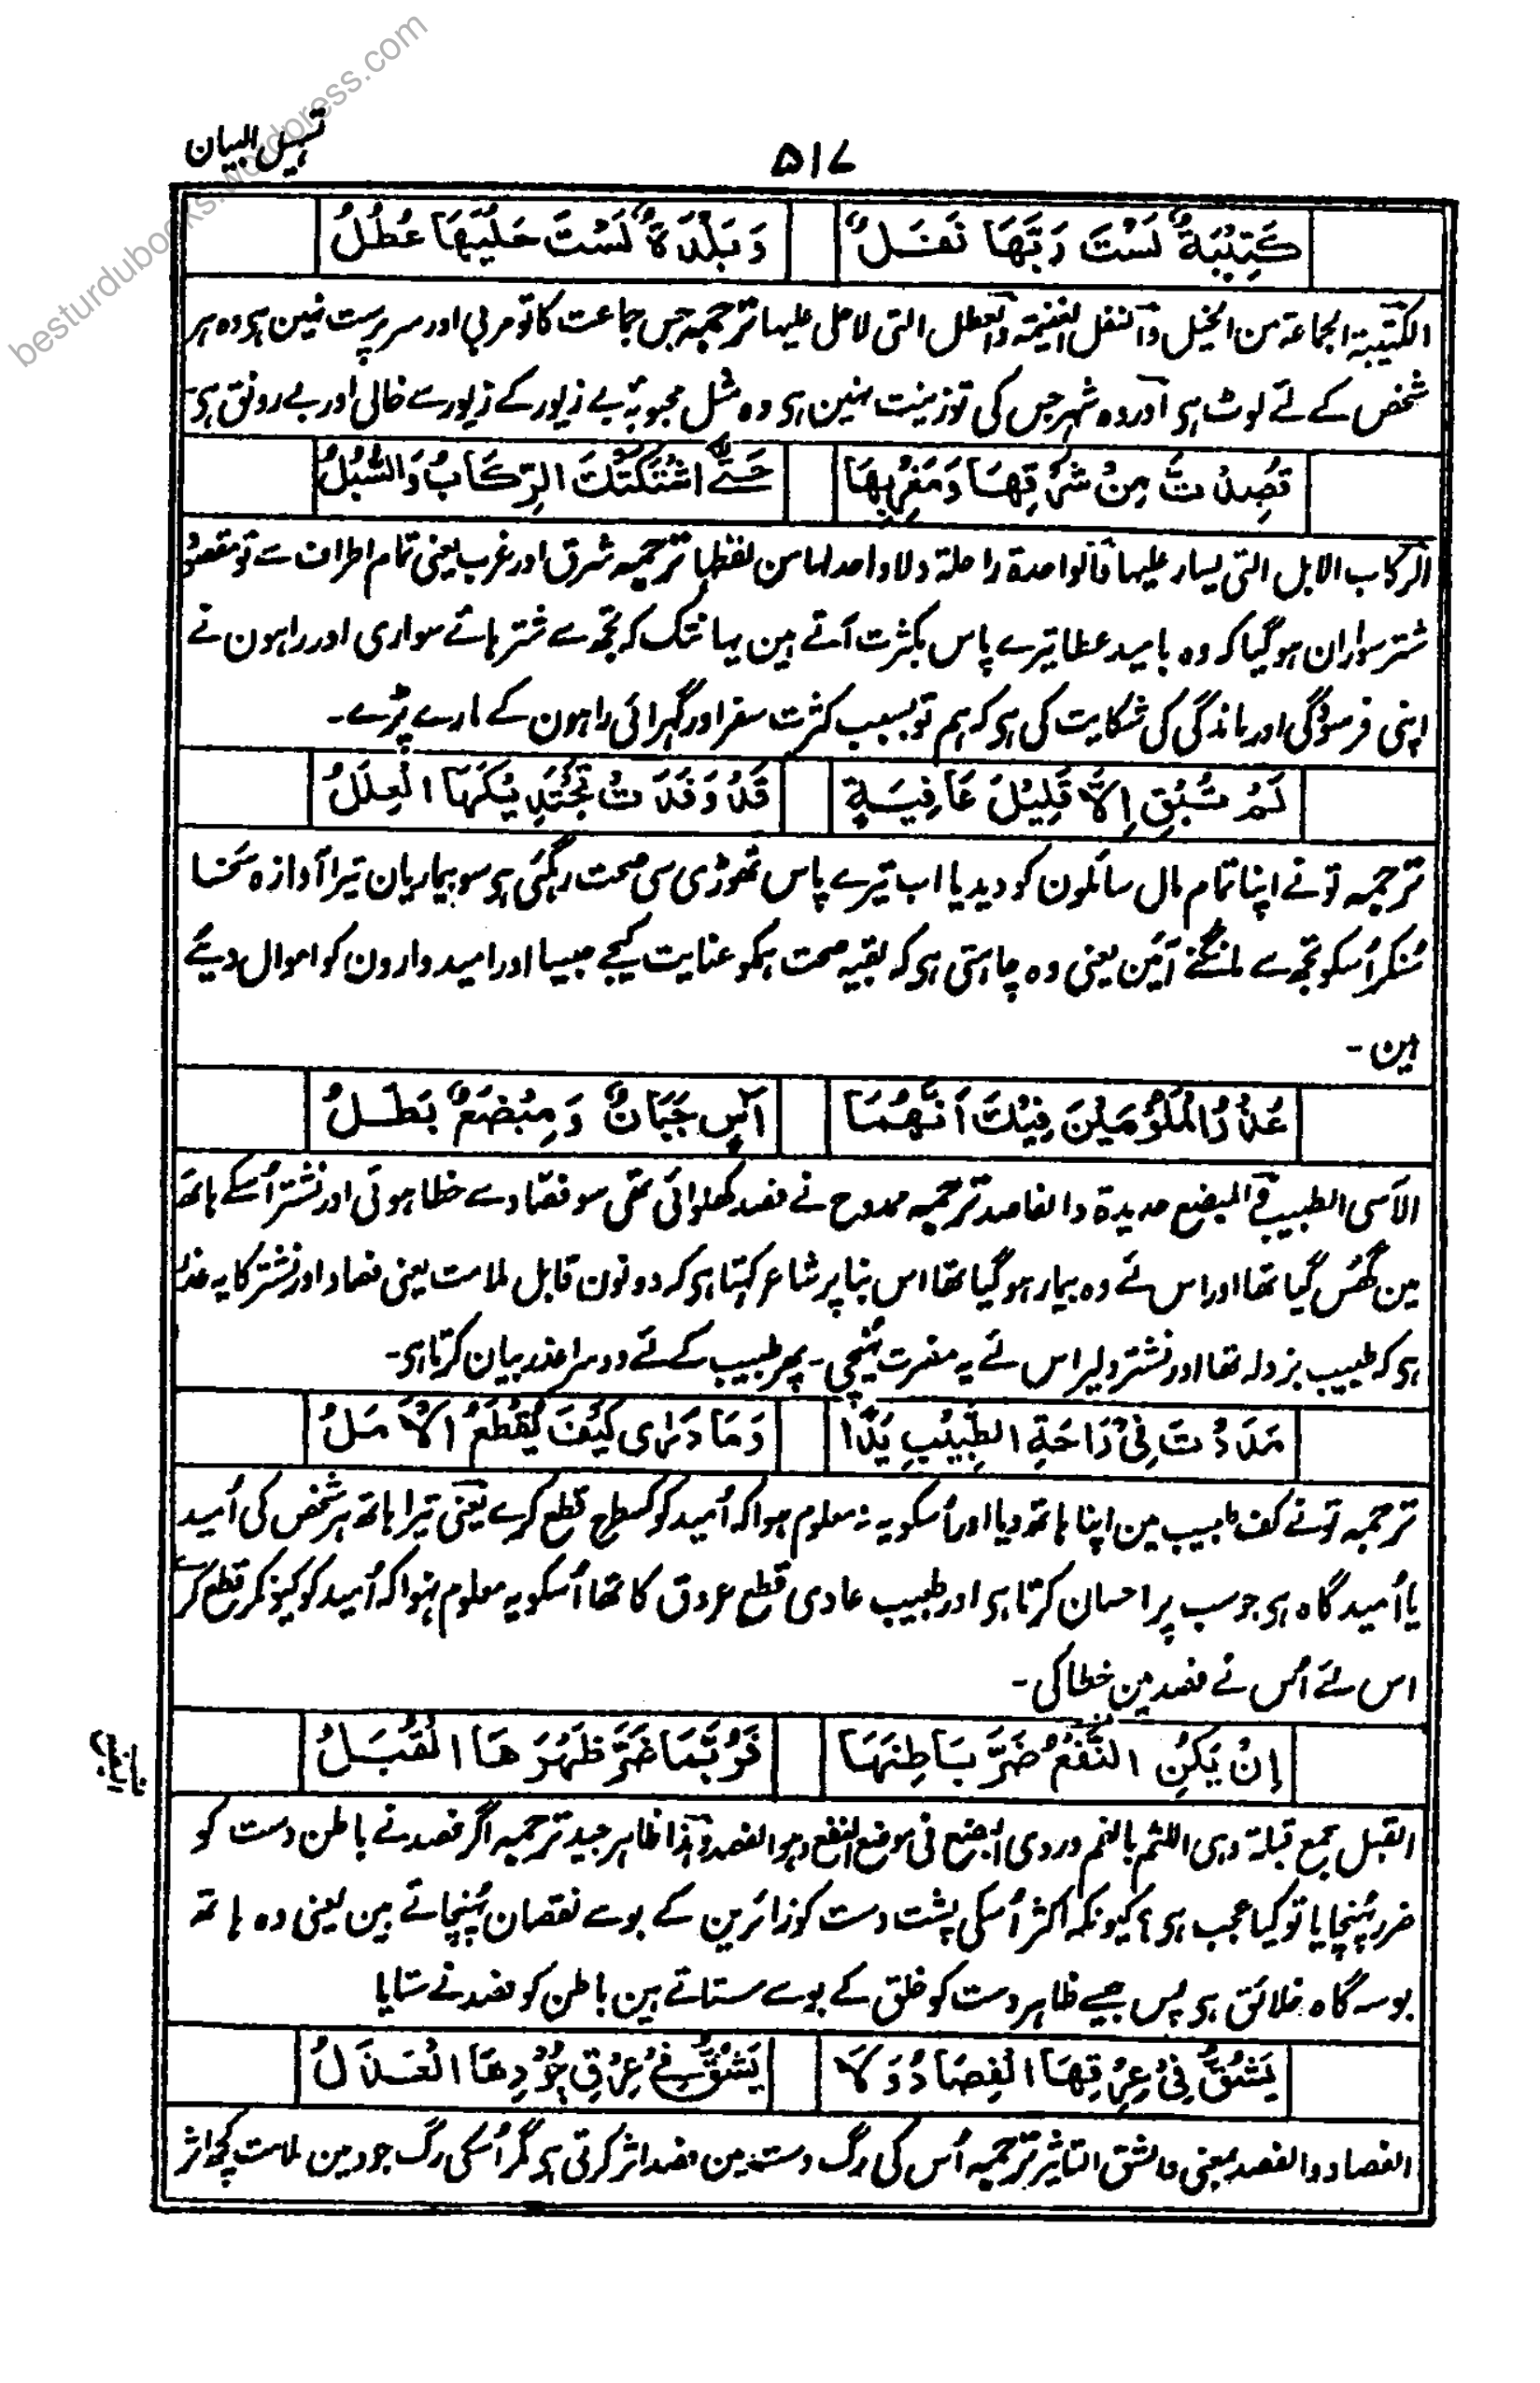 تسہیل البیان
۵۱۷
كَتِيْبَةٌ لَسْتَ رَبَّهَا نَفَلٌ وَبَلْدَةٌ لَسْتَ حَلْيَهَا عُطُلُ
الکتیبۃ الجماعۃ من الخیل والنفل الغنیمۃ والعطل التی لا حلی علیہا ترجمہ جس جماعت کا تو مربی اور سرپرست نہین ہی وہ ہر
شخص کے لئے لوٹ ہی اور وہ شہر جس کی تو زینت نہین ہی وہ مثل محبوبۂ بے زیور کے زیور سے خالی اور بے رونق ہی
قُصِدْتَ مِنْ شَرْقِهَا وَمَغْرِبِهَا حَتَّى اشْتَكَتْكَ الرِّكَابُ وَالسُّبُلُ
الرکاب الابل التی یسار علیہا فالواحدۃ راحلۃ ولا واحد لہا من لفظہا ترجمہ شرق اور غرب یعنی تمام اطراف سے تو مقصود
شتر سواران ہوگیا کہ وہ بامید عطا تیرے پاس بکثرت آتے ہین یہانتک کہ تجھ سے شتر ہائے سواری اور راہون نے
اپنی فرسودگی اور ماندگی کی شکایت کی ہی کہ ہم تو بسبب کثرت سفر اور گہرائی راہون کے مارے پڑے۔
لَمْ تُبْقِ اِلَّا قَلِيْلَ عَافِيَةٍ قَدْ وَفَدَتْ تَجْتَدِيْكَهَا الْعِلَلُ
ترجمہ تو نے اپنا تمام مال سائلون کو دیدیا اب تیرے پاس تھوڑی سی صحت رہگئی ہی سو بیماریان تیرا آوازہ سخا
سنکر اُسکو تجھ سے مانگنے آئین یعنی وہ چاہتی ہی کہ بقیہ صحت ہمکو عنایت کیجے جیسا اور امیدوارون کو اموال دیئے
ہین ۔
عُذْرُ الْمَلُوْمَيْنِ فِيْكَ اَنَّهُمَا اٰسٍ جَبَانٌ وَمِبْضَعٌ بَطَلُ
الآسی الطبیب والمبضع حدیدۃ الفاصد ترجمہ ممدوح نے فصد کھلوائی تھی سو فصاد سے خطا ہوئی اور نشتر اُسکے ہاتھ
مین گھُس گیا تھا اور اس لئے وہ بیمار ہوگیا تھا اس بنا پر شاعر کہتا ہی کہ دونون قابل ملامت یعنی فصاد اور نشتر کا یہ عذر
ہی کہ طبیب بزدلہ تھا اور نشتر دلیر اس لئے یہ مضرت پہنچی ۔ پھر طبیب کے لئے دوسرا عذر بیان کرتا ہی۔
مَدَدْتَ فِيْ رَاحَةِ الطَّبِيْبِ يَدًا وَمَا دَرٰى كَيْفَ يُقْطَعُ الْاَمَلُ
ترجمہ تونے کف طبیب مین اپنا ہاتھ دیا اور اُسکو یہ نہ معلوم ہوا کہ اُمید کو کسطرح قطع کرے یعنی تیرا ہاتھ ہر شخص کی اُمید
یا اُمیدگاہ ہی جو سب پر احسان کرتا ہی اور طبیب عادی قطع عروق کا تھا اُسکو یہ معلوم نہوا کہ اُمید کو کیونکر قطع کرے
اس لئے اُس نے فصد مین خطا کی ۔
اِنْ يَكُنِ النَّفْعُ ضَرَّ بَاطِنَهَا فَرُبَّمَا ضَرَّ ظَهْرَهَا الْقُبَلُ
القبل جمع قبلۃ وہی اللثم بالفم وروی البضع فی موضع النفع وہو الفصد وہذا ظاہر جید ترجمہ اگر فصد نے باطن دست کو
ضرر پہنچایا تو کیا عجب ہی ؟ کیونکہ اکثر اُسکی پشت دست کو زائرین کے بوسے نقصان پہنچاتے ہین یعنی وہ ہاتھ
بوسہ گاہ خلائق ہی پس جیسے ظاہر دست کو خلق کے بوسے ستاتے ہین باطن کو فصد نے ستایا
يَشُقُّ فِيْ عِرْقِهَا الْفِصَادُ وَلَا يَشُقُّ فِيْ عِرْقِ جُوْدِهَا الْعَذَلُ
الفصاد والفصد بمعنی والشق التاثیر ترجمہ اُس کی رگ دست مین فصد اثر کرتی ہی مگر اُسکی رگ جود مین ملامت کچھ اثر
besturdubooks.wordpress.com